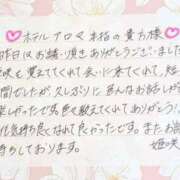 ホテルアロマ 本指の貴方様
昨日はお誘い頂きありがとうございました
咲を覚えてくれて会いに来てくれて
間でしたが久しぶりに色んなお話しが
しかったです 色々教えてくれてありがとう
気持ち良くなれて良かったです。またお
待ちしております。 姫咲